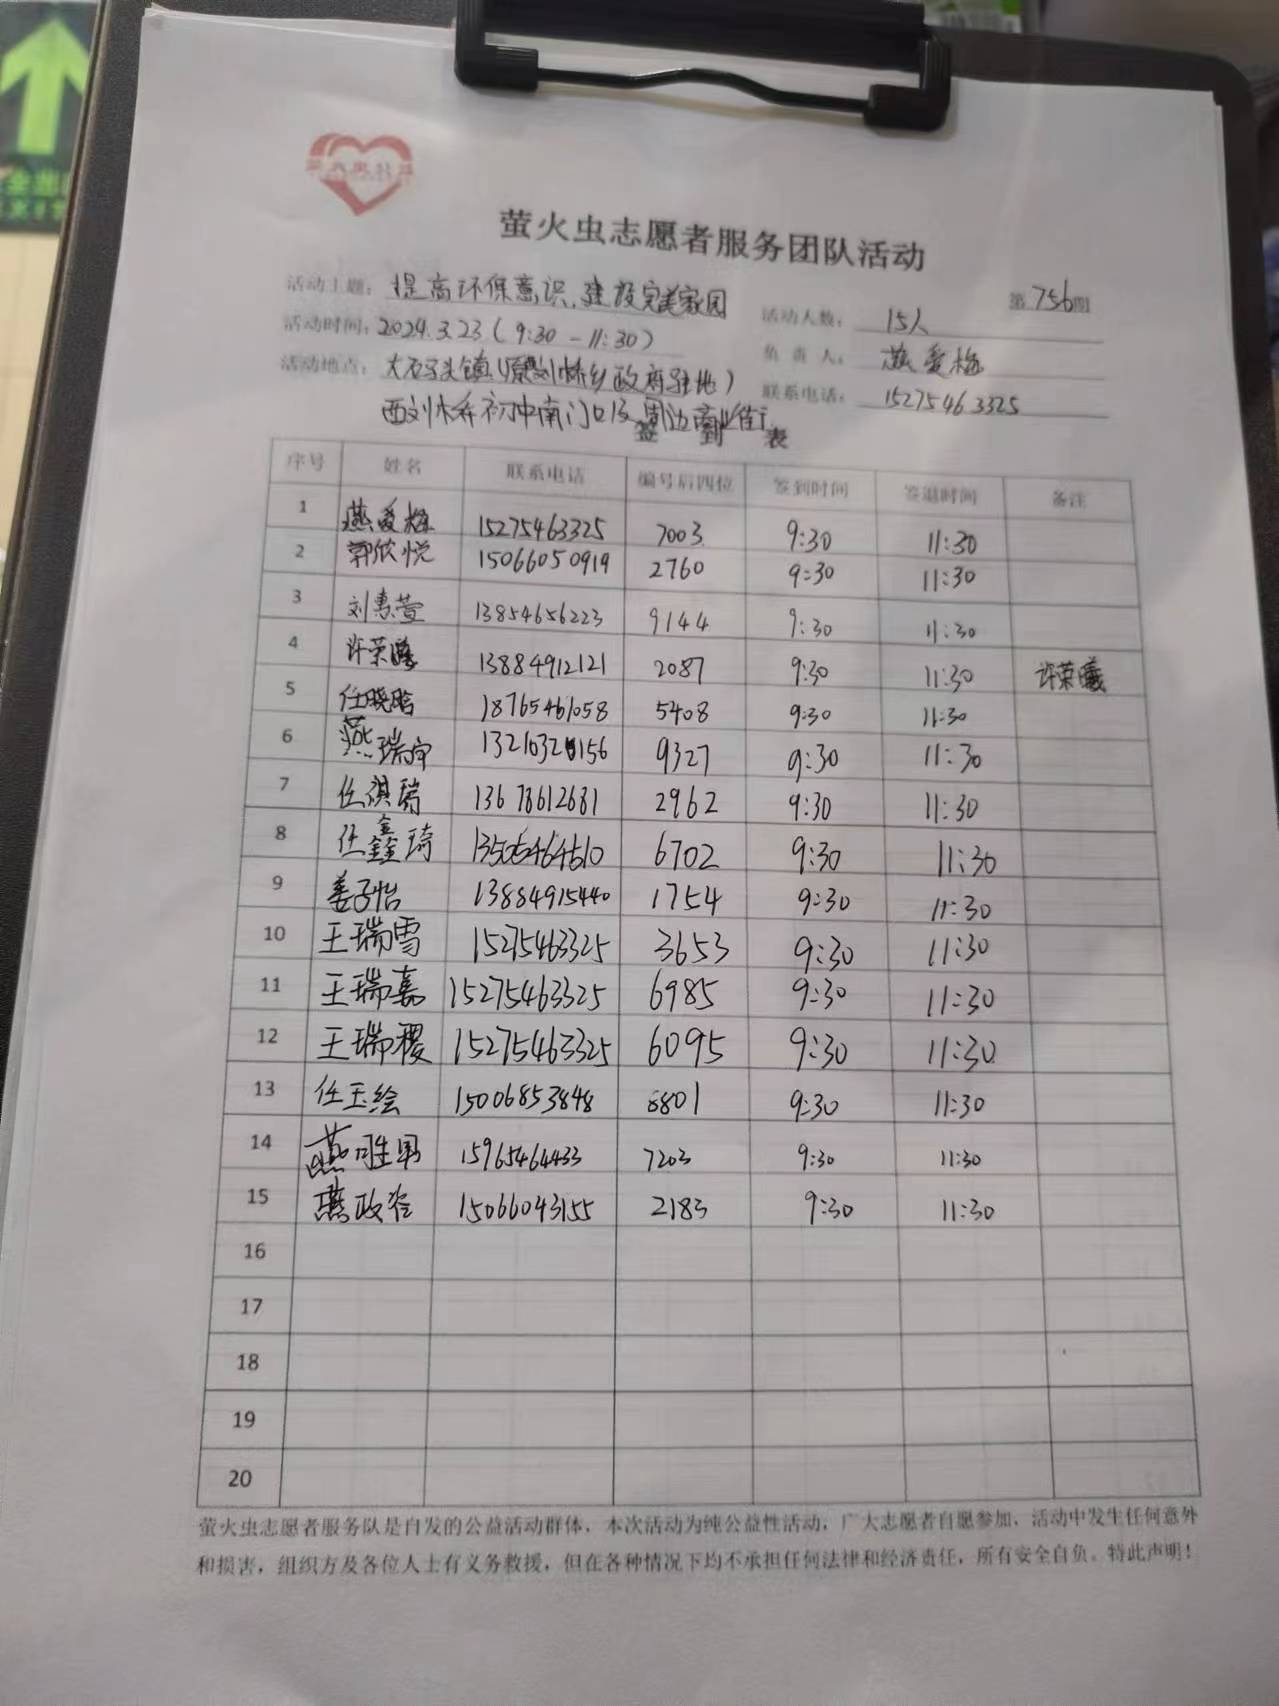 萤火虫志愿者服务团队活动
第756期
活动主题：提高环保意识，建设完美家园
活动人数：15人
活动时间：2024.3.23（9:30-11:30）
负责人：燕爱梅
活动地点：大码头镇（原刘桥乡政府驻地）
联系电话：15275463325
西刘桥初中南门口及周边商业街
签到表
序号 姓名 联系电话 编号后四位 签到时间 签退时间 备注
1 燕爱梅 15275463325 7003 9:30 11:30
2 郭欣悦 15066050919 2760 9:30 11:30
3 刘惠萱 13854656223 9144 9:30 11:30
4 许荣 13884912121 2087 9:30 11:30 许荣曦
5 任晓晗 18765461058 5408 9:30 11:30
6 燕瑞宇 9327 9:30 11:30
7 任淇瑞 13678612681 2962 9:30 11:30
8 任鑫琦 13505464610 6702 9:30 11:30
9 姜子怡 13884915440 1754 9:30 11:30
10 王瑞雪 15275463325 3653 9:30 11:30
11 王瑞嘉 15275463325 6985 9:30 11:30
12 王瑞稷 15275463325 6095 9:30 11:30
13 任玉绘 15006853848 6801 9:30 11:30
14 燕胜男 15965464433 7203 9:30 11:30
15 燕政 15066043155 2183 9:30 11:30
16
17
18
19
20
萤火虫志愿者服务队是自发的公益活动群体，本次活动为纯公益性活动，广大志愿者自愿参加，活动中发生任何意外
和损害，组织方及各位人士有义务救援，但在各种情况下均不承担任何法律和经济责任，所有安全自负。特此声明！